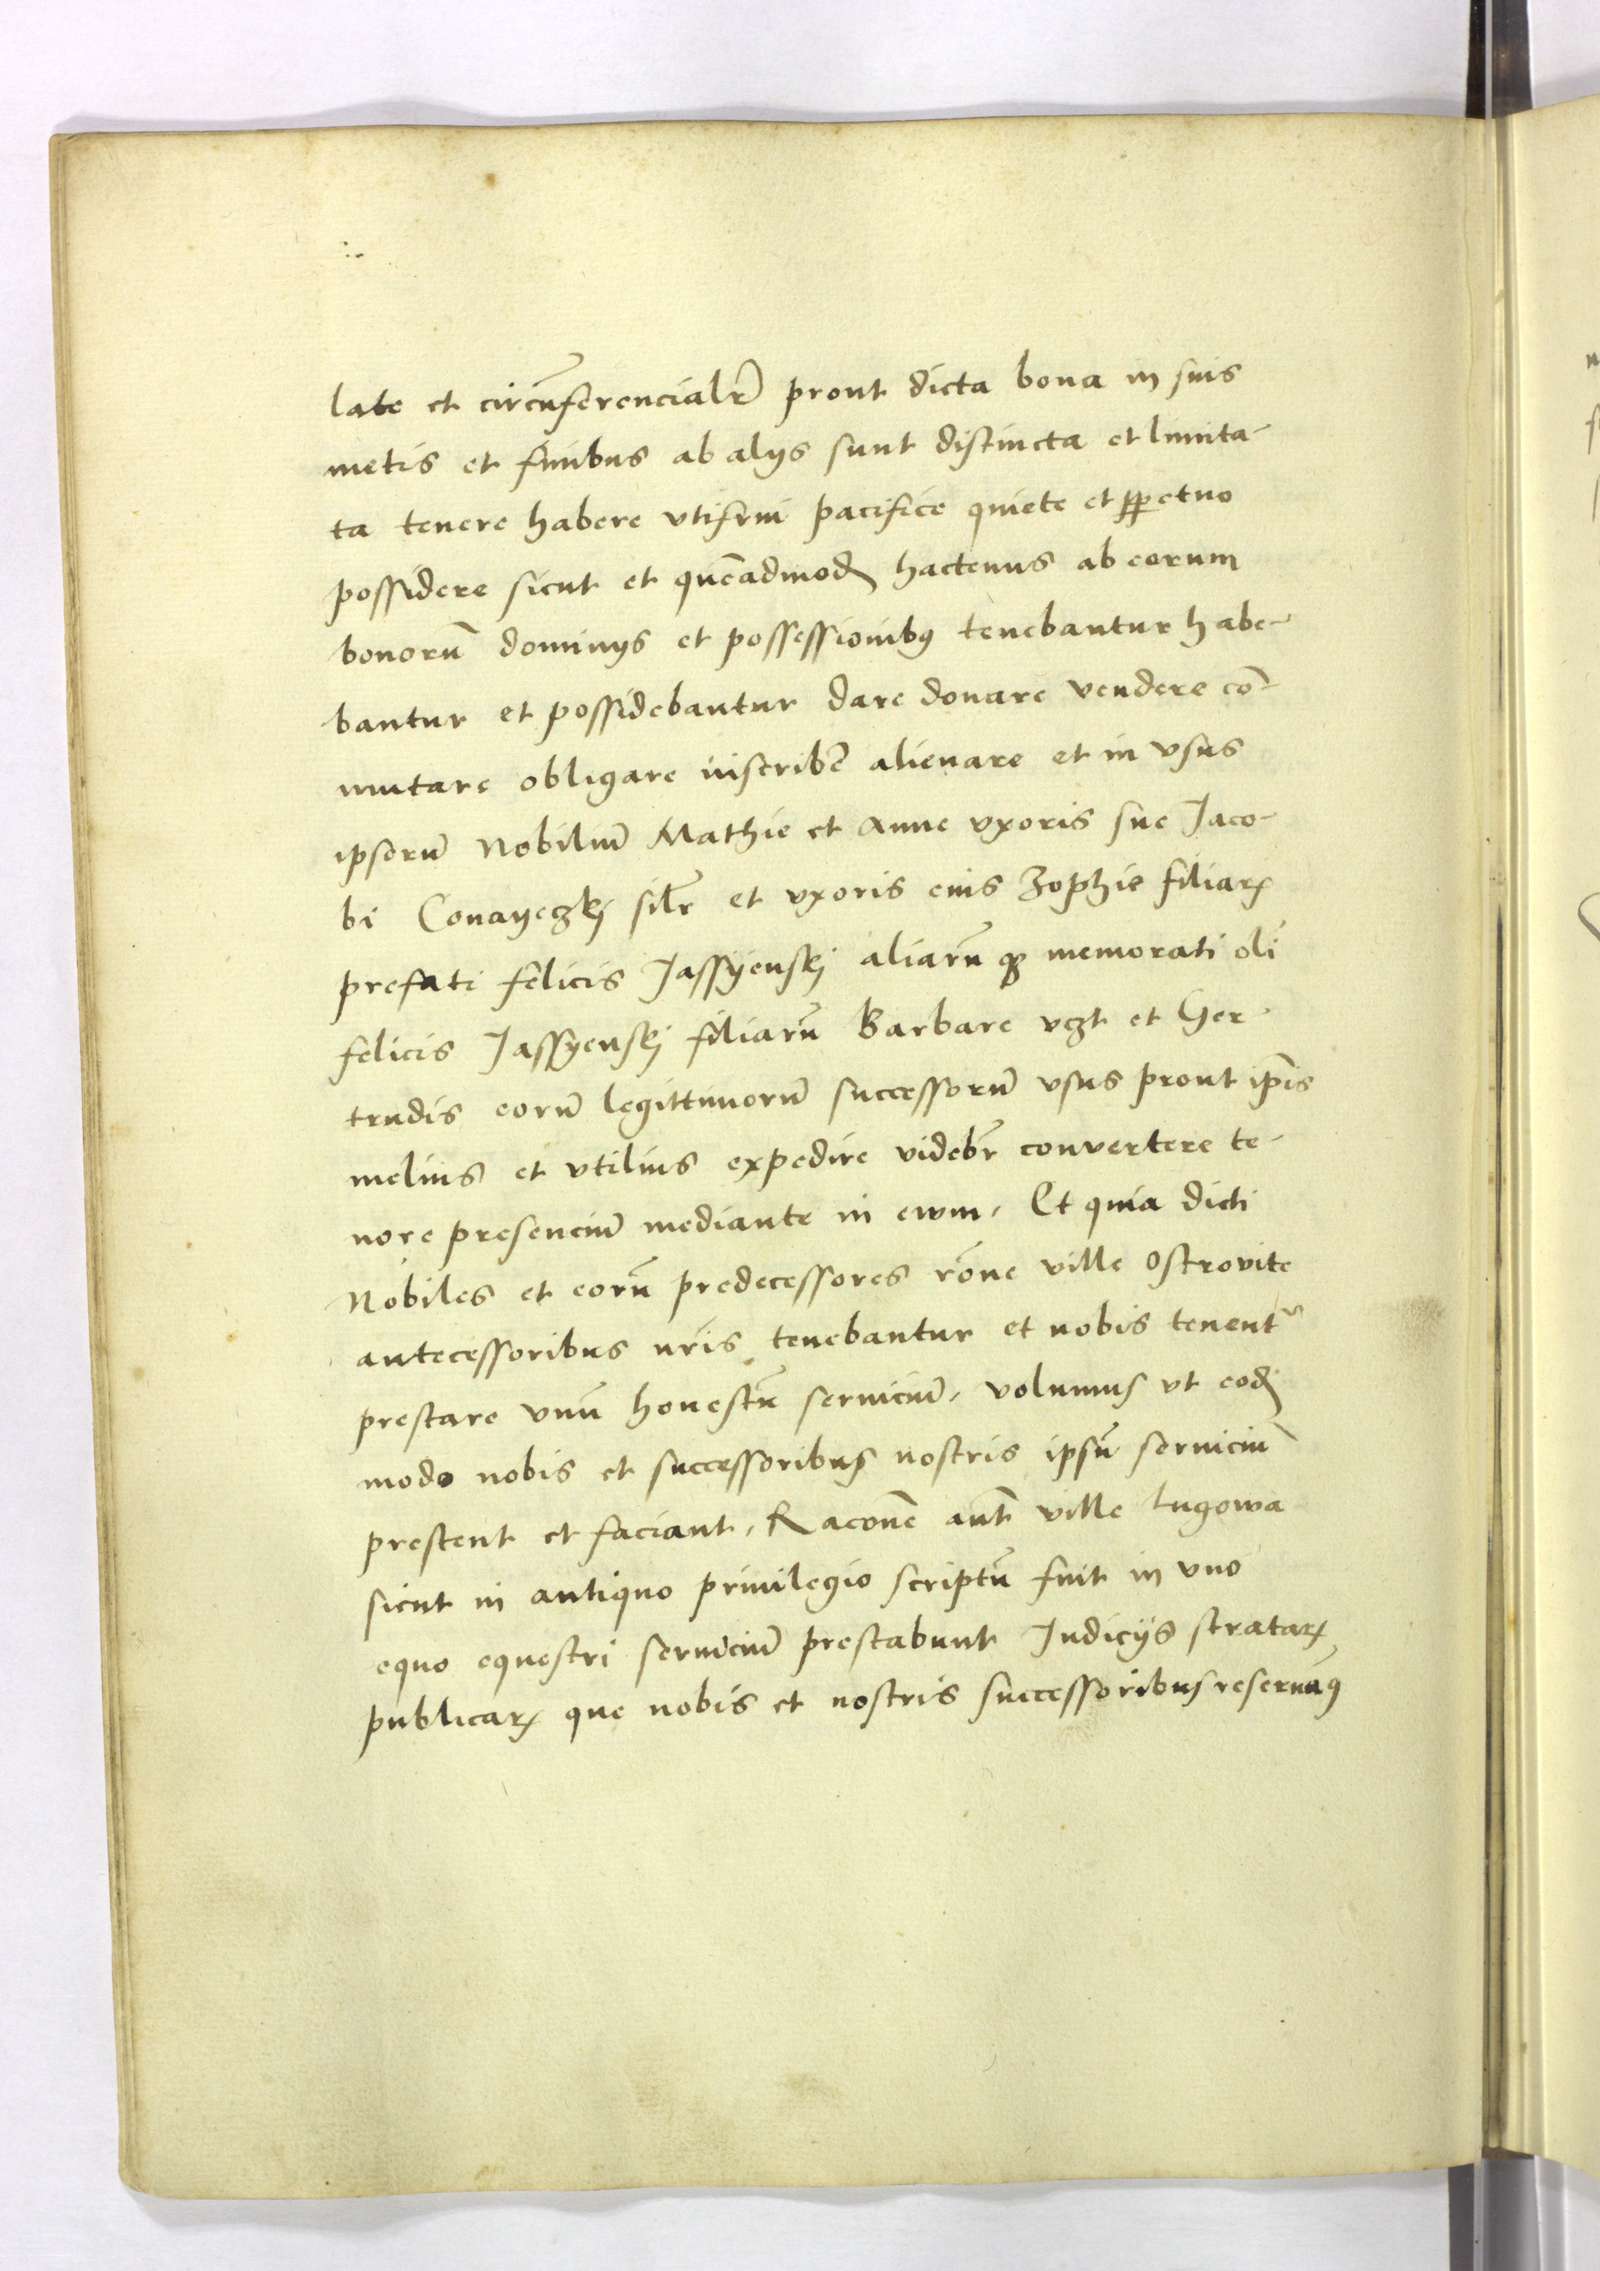 late et circūferencialr̄ prout dicta bona in suis
metis et finibus ab alys sunt distincta et limita-
ta tenere habere vtifrui pacifice quiete et ꝑpetuo
possidere sicut et quēadmodꝫ hactenus ab eorum
bonorū dominys et possessionibꝯ tenebantur habe-
bantur et possidebantur dare donare vendere cō-
mutare obligare inscribē alienare et in vsus
ipsorū Nobiliū Mathie et Anne vxoris sue Jaco-
bi Conayeczkj silr̄ et vxoris eius Zophie filiaꝝ
prefati felicis Jassyenskj aliarū qꝫ memorati oli
felicis Jassyenskj filiarū Barbare vczt et Ger-
trudis eorū legittimorū successorū vsus prout ip̄is
melius et vtilius expedire videbr̄ convertere te-
nore presenciū mediante in ewm, Et quia dicti
Nobiles et eorū predecessores rōne ville Ostrovite
antecessoribus nr̄is tenebantur et nobis tenentᷣ
prestare vnū honestū seruiciū, volumus vt eodꝫ
modo nobis et successoribus nostris ipsū seruiciū
prestent et faciant, Racōne aūt ville Lugowa
sicut in antiquo priuilegio scriptū fuit in vno
equo equestri seruiciū prestabunt Judicijs strataꝝ
publicaꝝ que nobis et nostris successoribus reseruāꝯ